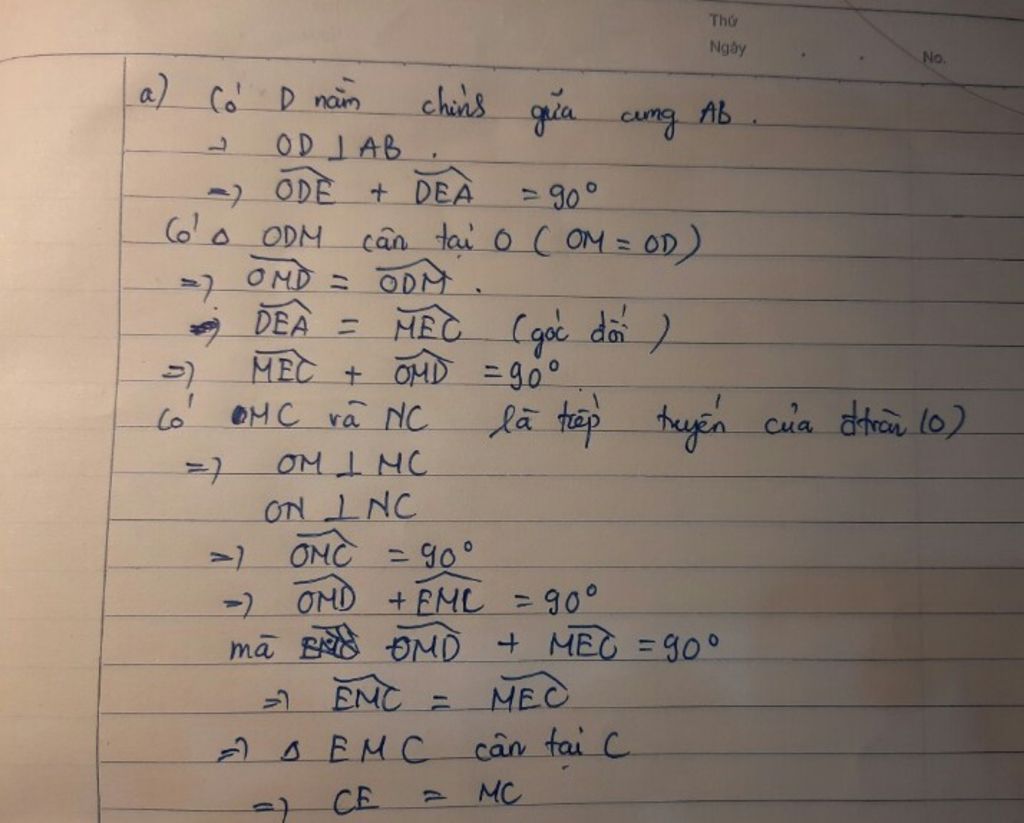 Thứ
Ngày . . No.
a) Có D nằm chính giữa cung AB.
→ OD ⊥ AB.
=> \widehat{ODE} + \widehat{DEA} = 90°
Có Δ ODM cân tại O (OM = OD)
=> \widehat{OMD} = \widehat{ODM}.
\widehat{DEA} = \widehat{MEC} (góc đối)
=> \widehat{MEC} + \widehat{OMD} = 90°
Có MC và NC là tiếp tuyến của đtròn (O)
=> OM ⊥ MC
ON ⊥ NC
=> \widehat{OMC} = 90°
=> \widehat{OMD} + \widehat{EMC} = 90°
mà \widehat{OMD} + \widehat{MEC} = 90°
=> \widehat{EMC} = \widehat{MEC}
=> Δ EMC cân tại C
=> CE = MC